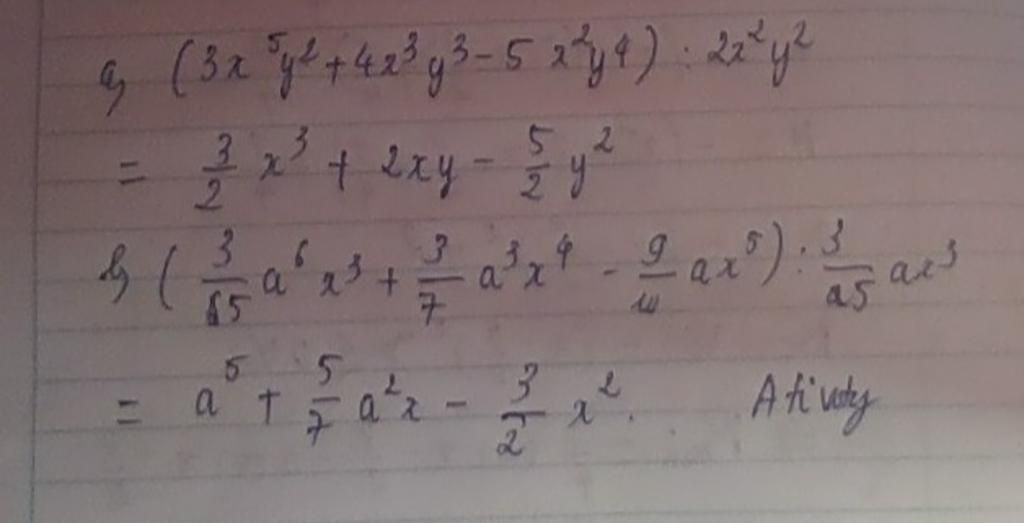 a, (3x^5y^2 + 4x^3y^3 - 5x^2y^4) : 2x^2y^2
= 3/2 x^3 + 2xy - 5/2 y^2
b, ( a^6 x^3 + 3/7 a^3 x^4 - ax^5) : ax^3
= a^5 + 5/7 a^2x - 3/2 x^2.